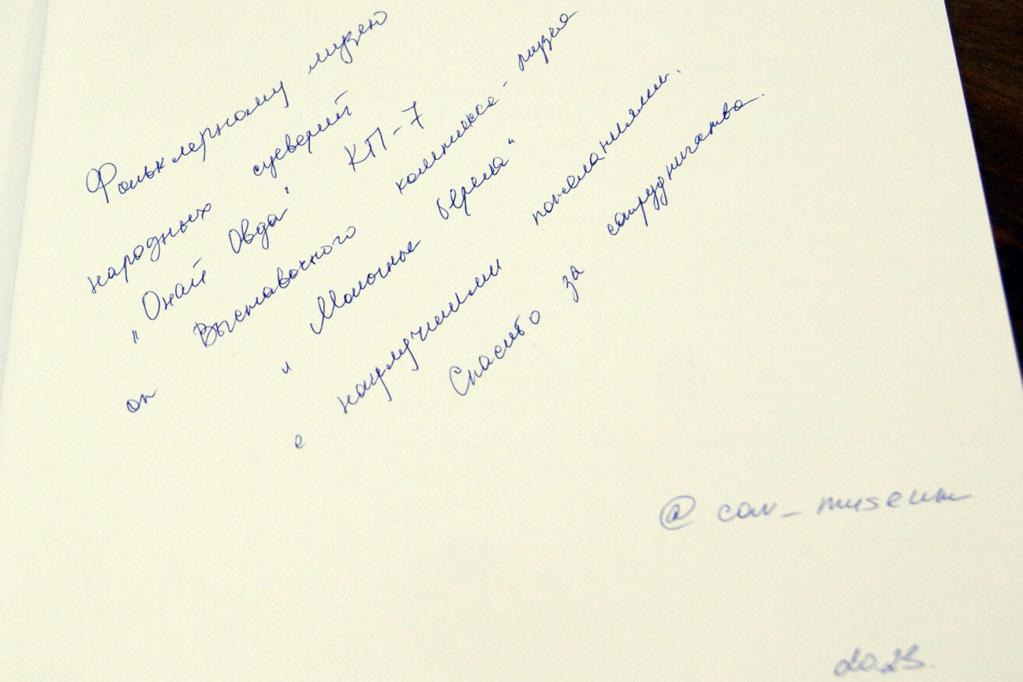 Фольклерному музею
народных суеверий
"Онай Овда" КП-7
от Выставочного комплекса-музея
"Молочные берега"
с наилучшими пожеланиями.
Спасибо за сотрудничество.
@cow_museum
2023.